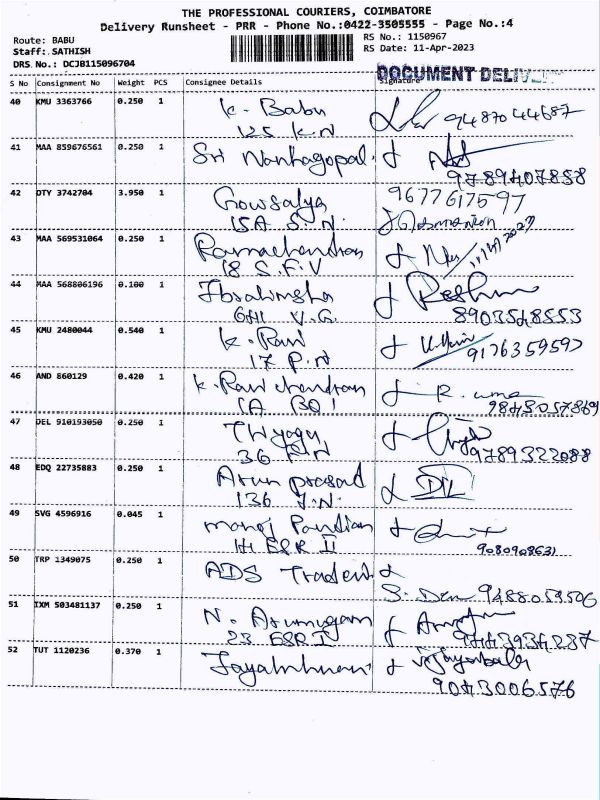 THE PROFESSIONAL COURIERS, COIMBATORE
Delivery Runsheet - PRR - Phone No.:0422-3505555 - Page No.:4
Route: BABU
RS No.: 1150967
Staff: SATHISH
RS Date: 11-Apr-2023
DRS No.: DCJB115096704
DOCUMENT
S No Consignment No Weight PCS Consignee Details Signature
40 KMU 3363766 0.250 1 K. Babu 9487044687
125 K.N
41 MAA 859676561 0.250 1 Sri Nanhagopal
9789407858
42 OTY 3742704 3.950 1 Gowsalya 9677617597
15A S.N.
43 MAA 569531064 0.250 1 Ramachandran
18 S.F.V
44 MAA 568806196 0.100 1 Ibrahimsha
6H1 V.G. 8903548553
45 KMU 2480044 0.540 1 K. Ravi
17 P.N 9176359597
46 AND 860129 0.420 1 K. Ravichandran R. uma
1A BO1
47 DEL 910193050 0.250 1 Thiyagu
36 P.N 9789322088
48 EDQ 22735883 0.250 1 Arun prasad
136 J.N.
49 SVG 4596916 0.045 1 manoj Pandian
ESR II 9080908631
50 TRP 1349075 0.250 1 ADS Traders
9488059506
51 IXM 503481137 0.250 1 N. Arumugam
23 ESR I
52 TUT 1120236 0.370 1
9043006576